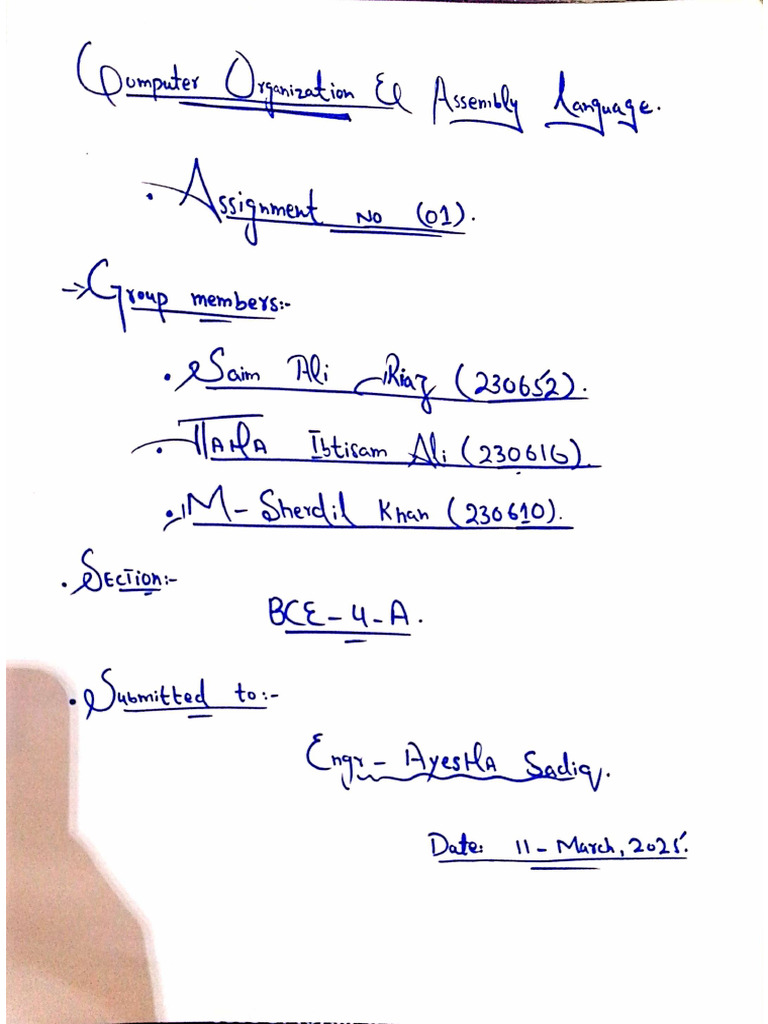 Computer Organization & Assembly Language.
• Assignment No (01).
→ Group members:-
• Saim Ali Riaz (230652).
• TAHA Ibtisam Ali (230616).
• M- Sherdil Khan (230610).
• Section:-
BCE-4-A.
• Submitted to:-
Engr- AyesHA Sadiq.
Date: 11-March, 2025.